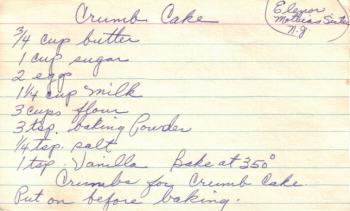 Crumb Cake
Elenor
Mathias Sister
N.J.
3/4 cup butter
1 cup sugar
2 eggs
1 1/4 cup milk
3 cups flour
3 tsp. baking Powder
1/4 tsp. salt
1 tsp. Vanilla Bake at 350°
Crumbs for Crumb Cake
Put on before baking.